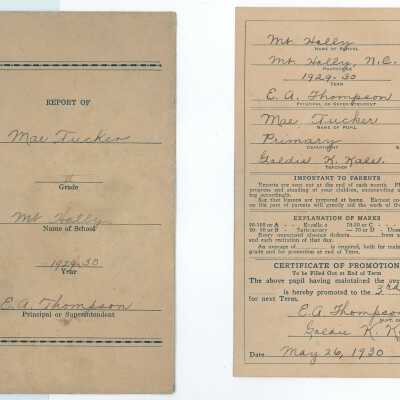 REPORT OF
Mae Tucker
II
Grade
Mt Holly
Name of School
1929-30
Year
E. A. Thompson
Principal or Superintendent
Mt. Holly
NAME OF SCHOOL
Mt. Holly, N.C.
1929-30
TERM
E. A. Thompson
PRINCIPAL OR SUPERINTENDENT
Mae Tucker
NAME OF PUPIL
Primary
DEPARTMENT
Goldie K. Kale
TEACHER
IMPORTANT TO PARENTS
Reports are sent out at the end of each month
progress and standing of your children,
ing accordingly.
See that lessons are prepared at home. Earnest
on the part of parents will greatly aid the work of the
EXPLANATION OF MARKS
90-100 or A Excellent 70-80 or C
80- 90 or B Satisfactory 70 or D
Every unexcused absence deducts from
and each recitation of that day.
An average of is required, both for
grade and for promotion at end of Term.
CERTIFICATE OF PROMOTION
To Be Filled Out at End of Term
The above pupil having maintained the
is hereby promoted to the 3rd
for next Term.
E. A. Thompson
Goldie K. K
Date May 26, 1930